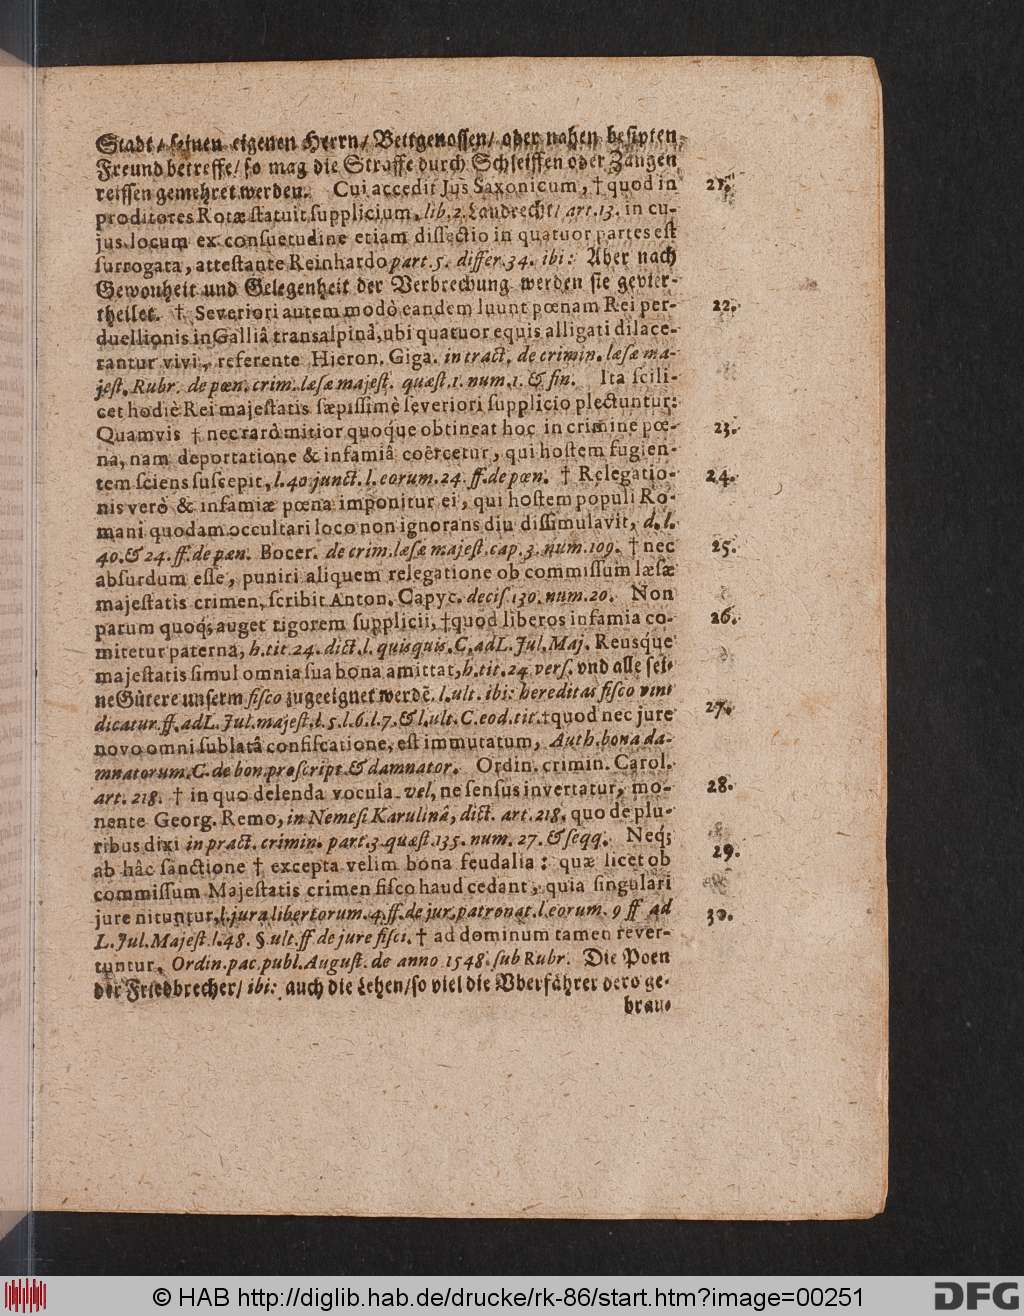 Stadt/ seinen eigenen Herrn/ Bettgenossen/ oder nahen besipten
Freund betreffe/ so mag die Straffe durch Schleiffen oder Zangen
reissen gemehret werden. Cui accedit Jus Saxonicum, † quod in
21.
proditores Rotæ statuit supplicium, lib. 2. Landrecht/ art. 13. in cu-
jus locum ex consuetudine etiam dissectio in quatuor partes est
surrogata, attestante Reinhardo part. 5. differ. 34. ibi: Aber nach
Gewonheit und Gelegenheit der Verbrechung werden sie gevier-
theilet. † Severiori autem modò eandem luunt pœnam Rei per-
22.
duellionis in Galliâ transalpinâ, ubi quatuor equis alligati dilace-
rantur vivi, referente Hieron. Giga. in tract. de crimin. læsæ ma-
jest. Rubr. de pœn. crim. læsæ majest. quæst. 1. num. 1. & fin. Ita scili-
cet hodiè Rei majestatis sæpissimè severiori supplicio plectuntur:
Quamvis † nec rarò mitior quoq́ue obtineat hoc in crimine pœ-
23.
na, nam deportatione & infamiâ coërcetur, qui hostem fugien-
tem sciens suscepit, l. 40. junct. l. eorum. 24. ff. de pœn. † Relegatio-
24.
nis verò & infamiæ pœna imponitur ei, qui hostem populi Ro-
mani quodam occultari loco non ignorans diu dissimulavit, d. l.
40. & 24. ff. de pœn. Bocer. de crim. læsæ majest. cap. 3. num. 109. † nec
25.
absurdum esse, puniri aliquem relegatione ob commissum læsæ
majestatis crimen, scribit Anton. Capyc. decis. 130. num. 20. Non
parum quoq́; auget rigorem supplicii, † quod liberos infamia co-
26.
mitetur paterna, h. tit. 24. dict. l. quisquis. C. ad L. Jul. Maj. Reusq́ue
majestatis simul omnia sua bona amittat, h. tit. 24. vers. vnd alle sei-
ne Gütere unserm fisco zugeeignet werdē. l. ult. ibi: hereditas fisco vin-
dicatur. ff. ad L. Jul. majest. l. 5. l. 6. l. 7. & l. ult. C. eod. tit. † quod nec jure
27.
novo omni sublatâ confiscatione, est immutatum, Auth. bona da-
mnatorum. C. de bon. proscript. & damnator. Ordin. crimin. Carol.
art. 218. † in quo delenda vocula vel, ne sensus invertatur, mo-
28.
nente Georg. Remo, in Nemesi Karulinâ, dict. art. 218. quo de plu-
ribus dixi in pract. crimin. part. 3. quæst. 135. num. 27. & seqq. Neq́;
ab hâc sanctione † excepta velim bona feudalia: quæ licet ob
29.
commissum Majestatis crimen fisco haud cedant, quia singulari
jure nituntur, l. jura libertorum. 4. ff. de jur. patronat. l. eorum. 9 ff. ad
30.
L. Jul. Majest. l. 48. §. ult. ff. de jure fisci. † ad dominum tamen rever-
tuntur, Ordin. pac. publ. August. de anno 1548. sub Rubr. Die Poen
der Friedbrecher/ ibi: auch die Lehen/ so viel die Vberfahrer dero ge-
brau-
© HAB http://diglib.hab.de/drucke/rk-86/start.htm?image=00251
DFG